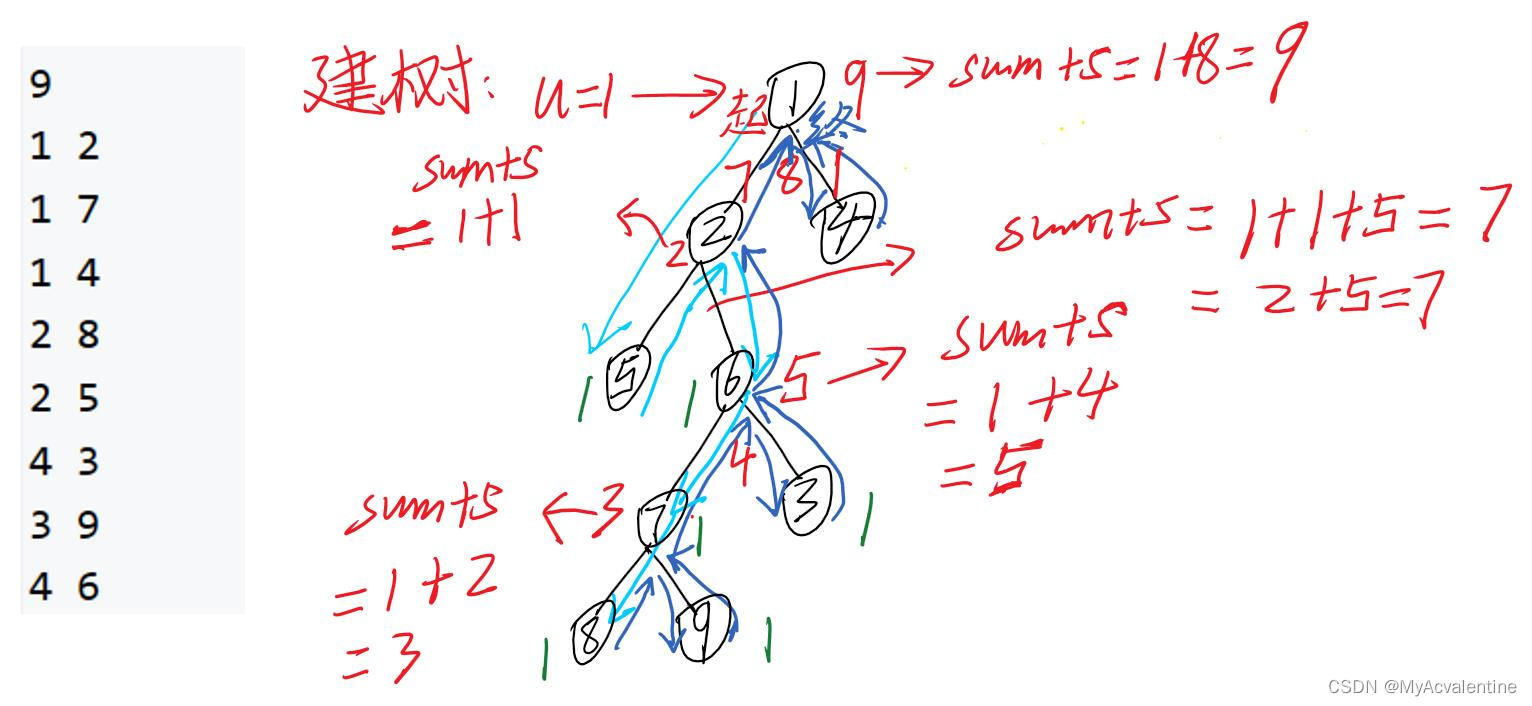 9
1 2
1 7
1 4
2 8
2 5
4 3
3 9
4 6
建树: u=1
起
1
终
9
sum+s=1+8=9
sum+s
=1+1
7
8
1
2
2
4
sum+s=1+1+5=7
=2+5=7
1
5
1
6
5
sum+s
=1+4
=5
4
sum+s
=1+2
=3
3
7
1
3
1
1
8
9
1
CSDN @MyAcvalentine